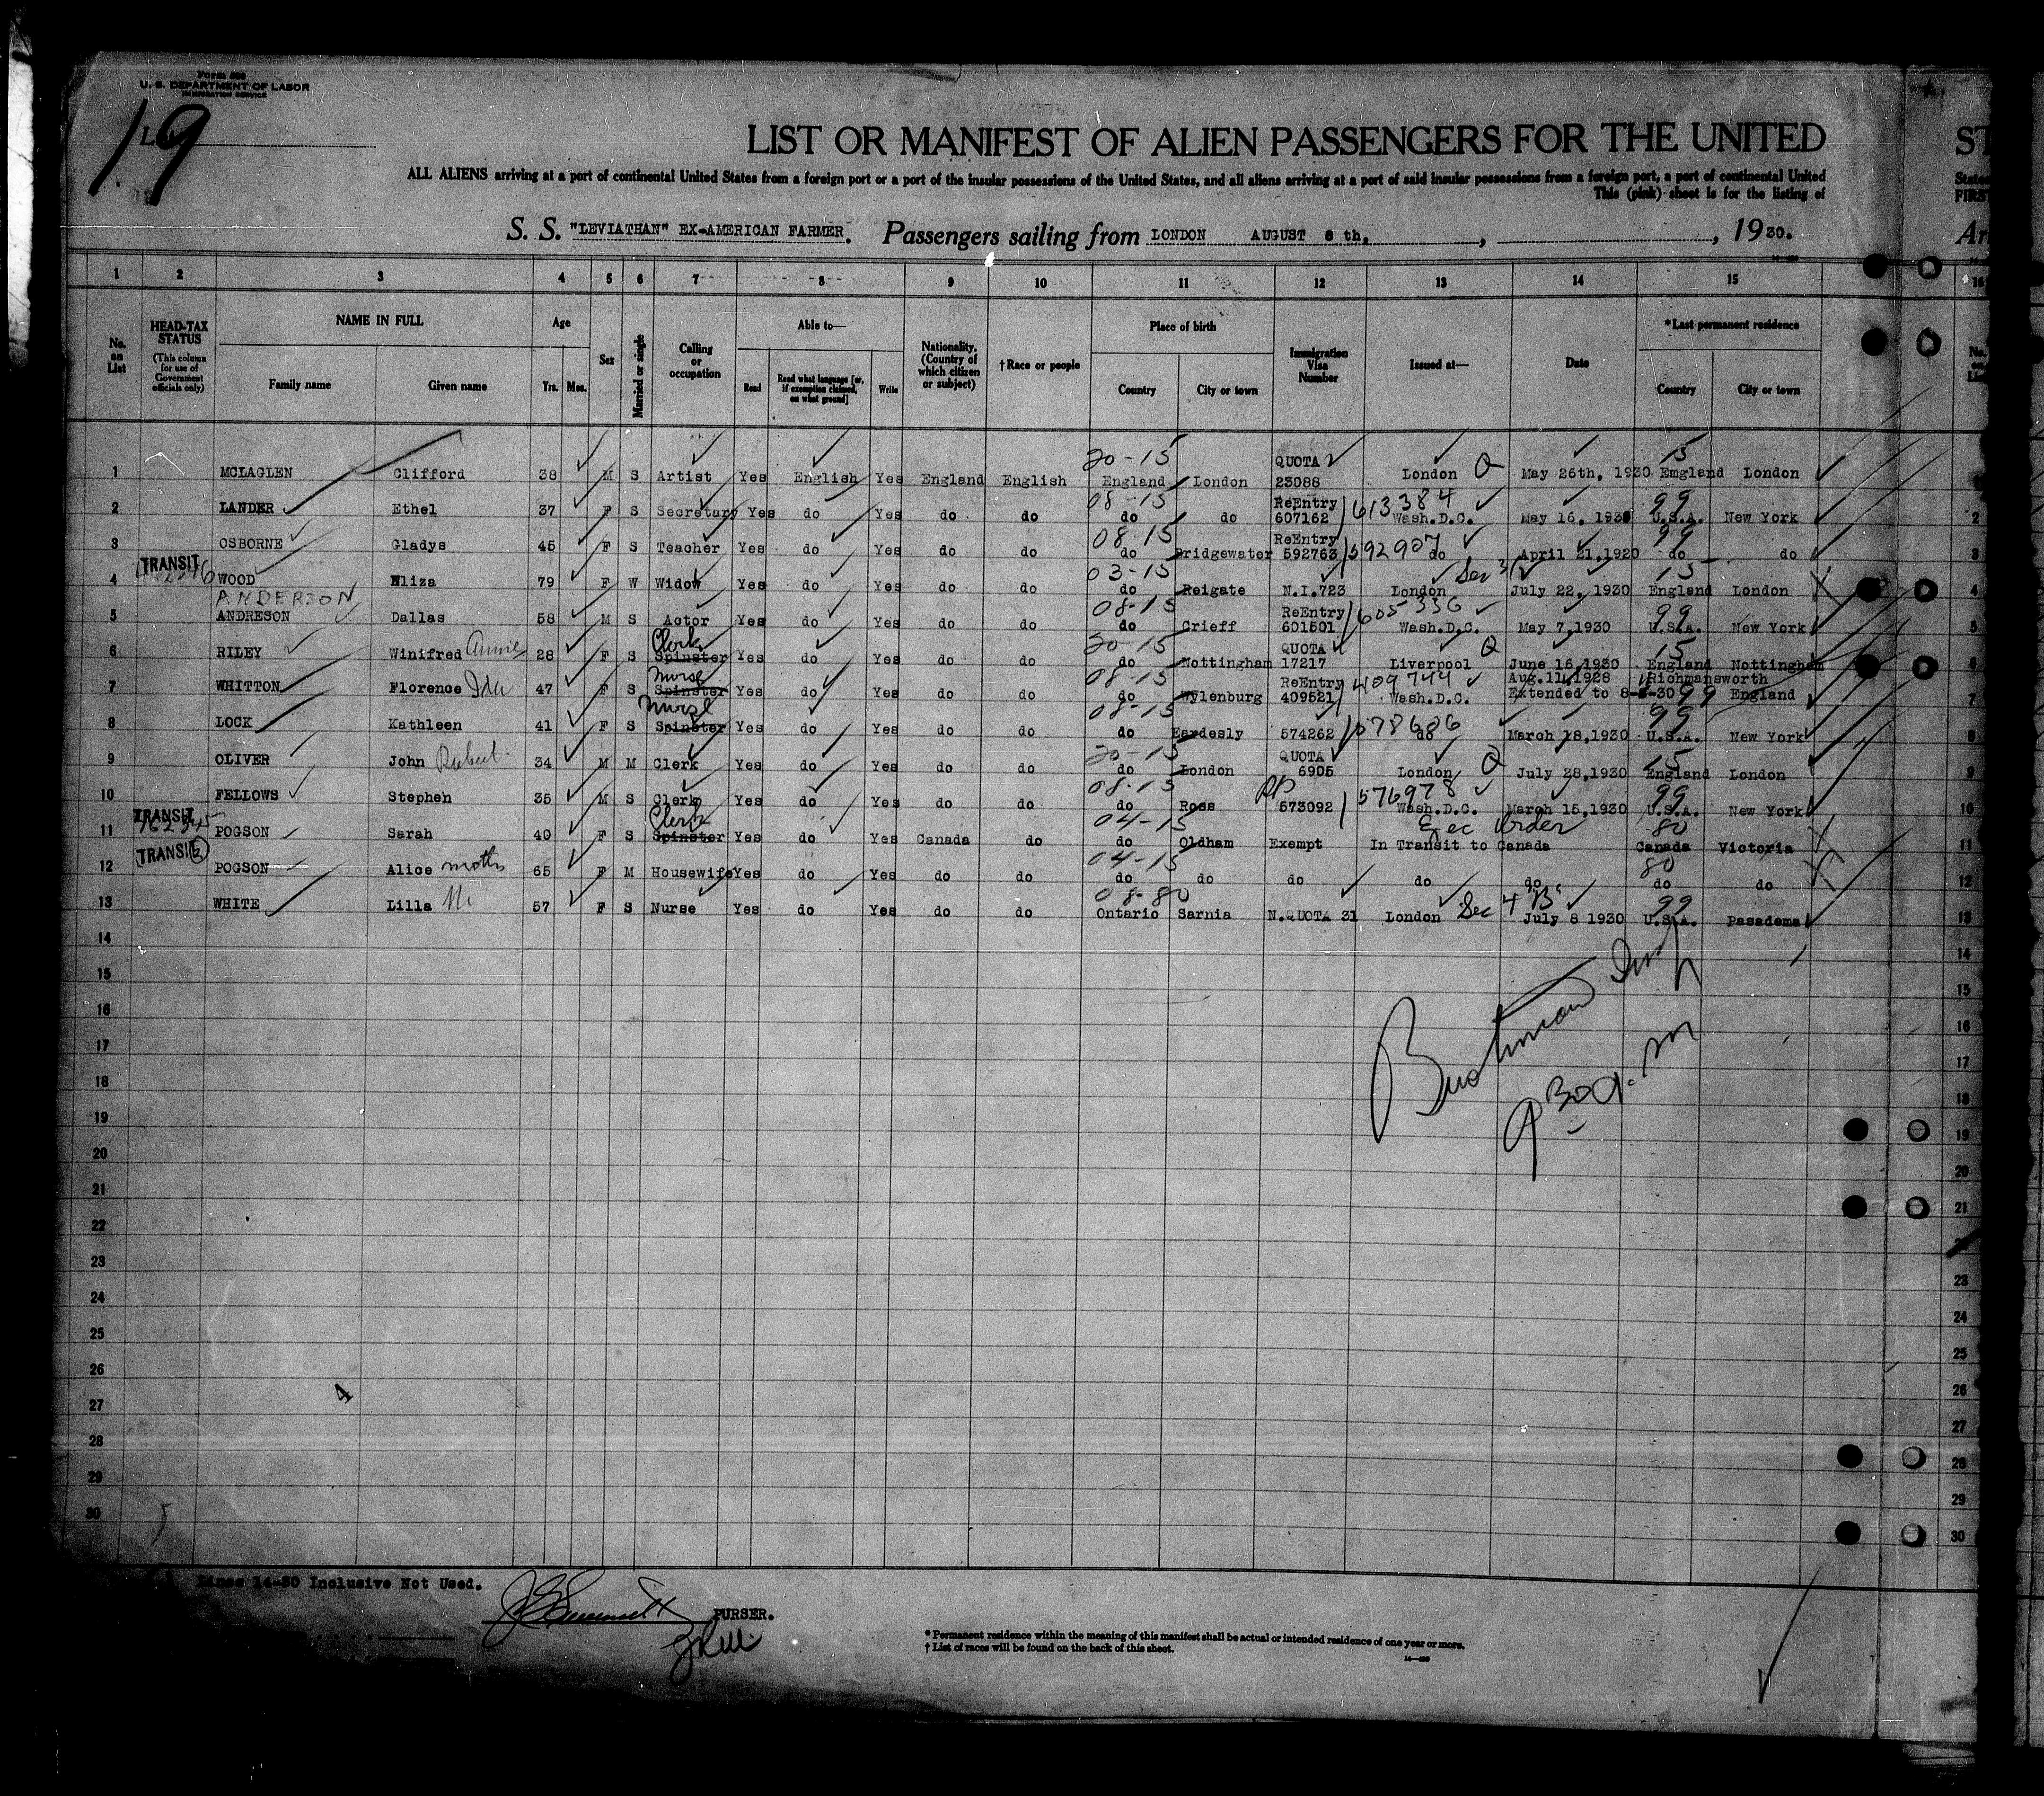 Form 500
U. S. DEPARTMENT OF LABOR
IMMIGRATION SERVICE
19
LIST OR MANIFEST OF ALIEN PASSENGERS FOR THE UNITED
ALL ALIENS arriving at a port of continental United States from a foreign port or a port of the insular possessions of the United States, and all aliens arriving at a port of said insular possessions from a foreign port, a port of continental United
This (pink) sheet is for the listing of
S. S. "LEVIATHAN" EX-AMERICAN FARMER. Passengers sailing from LONDON AUGUST 8 th, , 1930.
1 2 3 4 5 6 7 8 9 10 11 12 13 14 15 16
No. on List HEAD-TAX STATUS (This column for use of Government officials only) NAME IN FULL Family name Given name Age Yrs. Mos. Sex Married or single Calling or occupation Able to— Read Read what language [or, if exemption claimed, on what ground] Write Nationality. (Country of which citizen or subject) †Race or people Place of birth Country City or town Immigration Visa Number Issued at— Date *Last permanent residence Country City or town
20-15 15
1 MCLAGLEN Clifford 38 M S Artist Yes English Yes England English England London QUOTA 23088 London Q May 26th, 1930 Emgland London
08-15 613384 99
2 LANDER Ethel 37 F S Secretary Yes do Yes do do do do ReEntry 607162 Wash.D.C. May 16, 1930 U.S.A. New York 2
08-15 592907 99
3 OSBORNE Gladys 45 F S Teacher Yes do Yes do do do Bridgewater ReEntry 592763 do April 21,1920 do do 3
TRANSIT 03-15 Sec 3 15
4 WOOD Eliza 79 F W Widow Yes do Yes do do do Reigate N.I.723 London July 22, 1930 England London 4
ANDERSON 08-15 605336 99
5 ANDRESON Dallas 58 M S Actor Yes do Yes do do do Crieff ReEntry 601501 Wash.D.C. May 7,1930 U.S.A. New York 5
Clerk 20-15 Q 15
6 RILEY Winifred Annie 28 F S Spinster Yes do Yes do do do Nottingham QUOTA 17217 Liverpool June 16,1930 England Nottingham 6
Nurse 08-15 409744 99
7 WHITTON Florence Ida 47 F S Spinster Yes do Yes do do do Wylenburg ReEntry 409521 Wash.D.C. Aug.11,1928 Extended to 8-8-30 Richmansworth England 7
Nurse 08-15 578686 99
8 LOCK Kathleen 41 F S Spinster Yes do Yes do do do Eardesly 574262 do March 18,1930 U.S.A. New York 8
20-15 Q 15
9 OLIVER John 34 M M Clerk Yes do Yes do do do London QUOTA 6905 London July 28,1930 England London 9
08-15 576978 99
10 FELLOWS Stephen 35 M S Clerk Yes do Yes do do do Ross 573092 Wash.D.C. March 15,1930 U.S.A. New York 10
TRANSIT Clerk 04-15 Exec Order 80
11 POGSON Sarah 40 F S Spinster Yes do Yes Canada do do Oldham Exempt In Transit to Canada Canada Victoria 11
TRANSIT 04-15 80
12 POGSON Alice moth 65 F M Housewife Yes do Yes do do do do do do do do do 12
08-80 Sec 4 B 99
13 WHITE Lilla M. 57 F S Nurse Yes do Yes do do Ontario Sarnia N.QUOTA 31 London July 8 1930 U.S.A. Pasadema 13
14 14
15 15
16 16
17 17
18 18
19 19
20 20
21 21
22
23 23
24 24
25 25
26 26
27 27
28 28
29 29
30 30
9 30 a. m
4
Lines 14-30 Inclusive Not Used.
PURSER.
* Permanent residence within the meaning of this manifest shall be actual or intended residence of one year or more.
† List of races will be found on the back of this sheet.